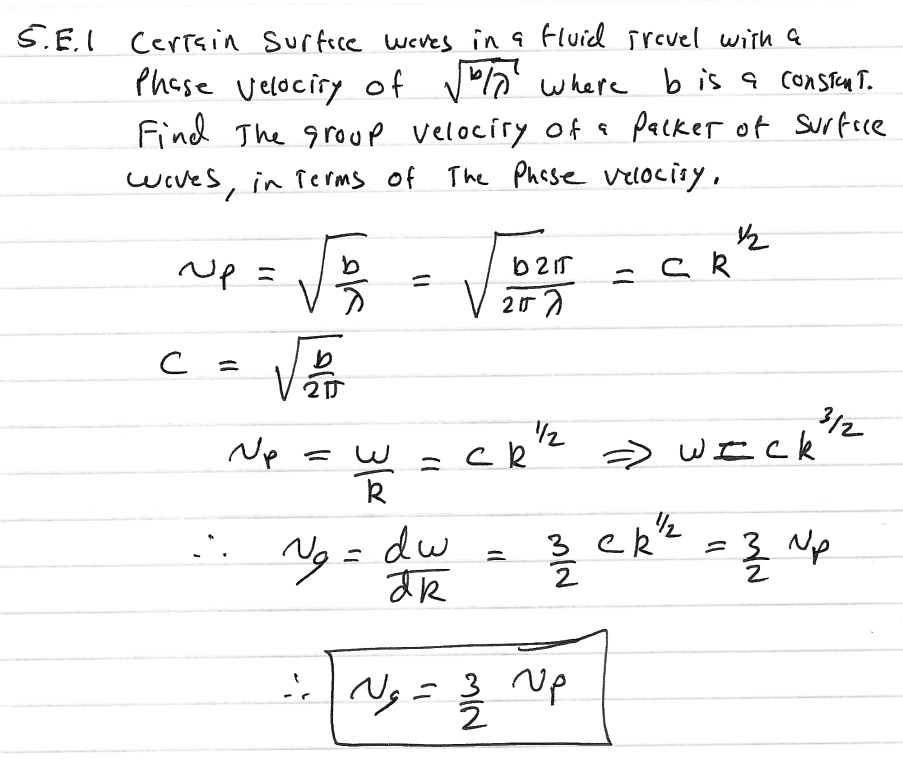 5.E.1 Certain surface waves in a fluid travel with a
Phase velocity of √(b/λ) where b is a constant.
Find The group velocity of a Packet of surface
waves, in terms of The Phase velocity.
v_p = √(b/λ) = √(b2π/2πλ) = C k^1/2
C = √(b/2π)
v_p = w/k = C k^1/2 ⇒ w = C k^3/2
∴ v_g = dw/dk = 3/2 C k^1/2 = 3/2 v_p
∴ v_g = 3/2 v_p